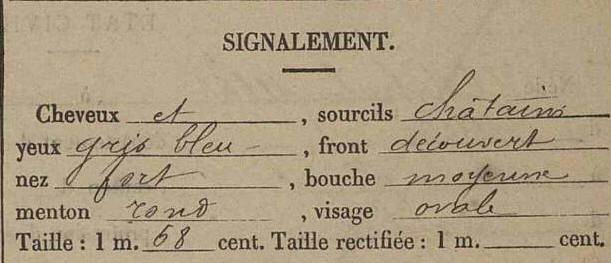 SIGNALEMENT.
Cheveux et, sourcils châtains
yeux gris bleu, front découvert
nez fort, bouche moyenne
menton rond, visage ovale
Taille : 1 m. 68 cent. Taille rectifiée : 1 m. cent.